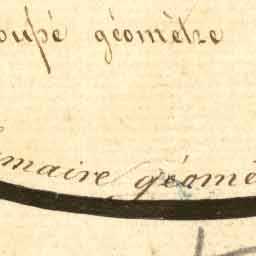 oupé géomètre
maire géomè